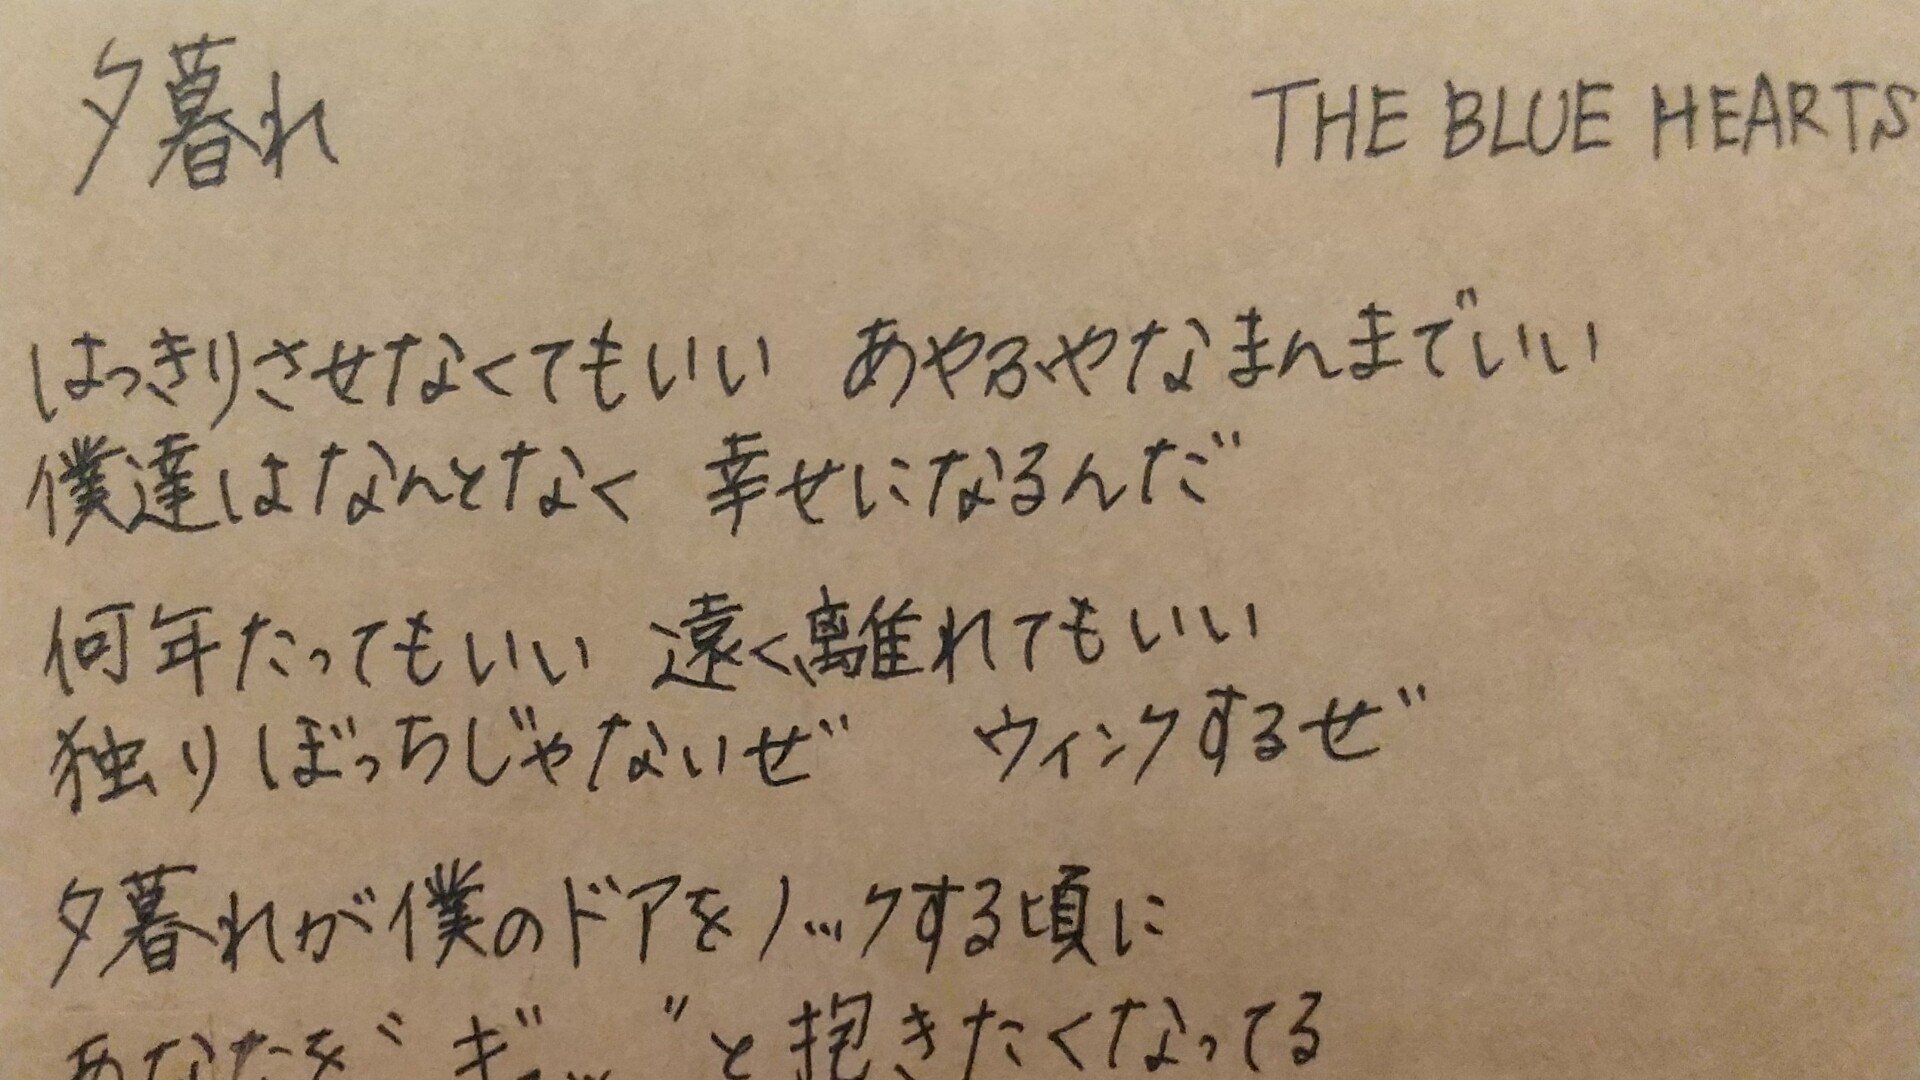 夕暮れ
THE BLUE HEARTS
はっきりさせなくてもいい あやふやなまんまでいい
僕達はなんとなく 幸せになるんだ
何年たってもいい 遠く離れてもいい
独りぼっちじゃないぜ ウィンクするぜ
夕暮れが僕のドアをノックする頃に
あなたを〝ギュッ〟と抱きたくなってる